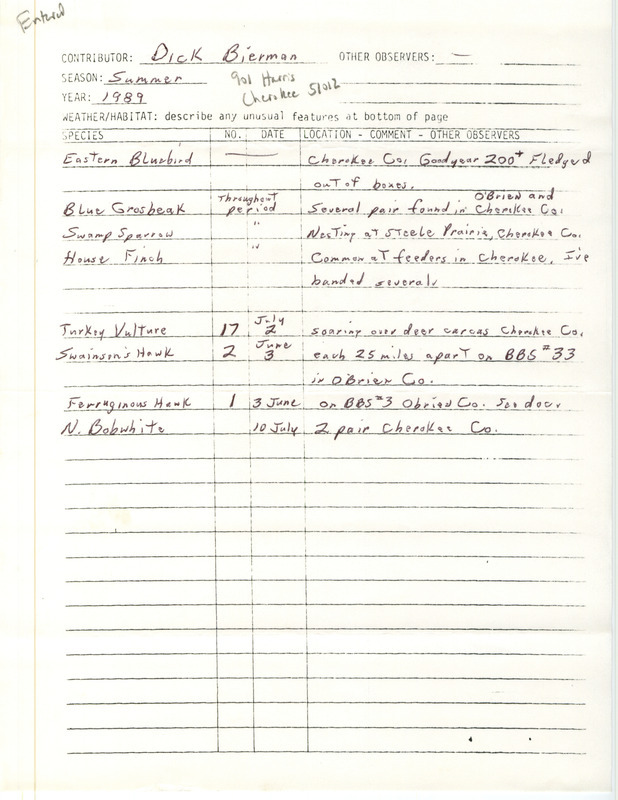 Entered
CONTRIBUTOR: Dick Bierman OTHER OBSERVERS: —
SEASON: Summer 901 Harris
YEAR: 1989 Cherokee 51012
WEATHER/HABITAT: describe any unusual features at bottom of page
SPECIES NO. DATE LOCATION - COMMENT - OTHER OBSERVERS
Eastern Bluebird — Cherokee Co. Goodyear 200+ Fledged
out of boxes.
Blue Grosbeak Throughout period Several pair found in O'Brien and Cherokee Co.
Swamp Sparrow " Nesting at Steele Prairie, Cherokee Co.
House Finch " Common at feeders in Cherokee, I've
banded several.
Turkey Vulture 17 July 2 soaring over deer carcas Cherokee Co.
Swainson's Hawk 2 June 3 each 25 miles apart on BBS #33
in O'Brien Co.
Ferruginous Hawk 1 3 June on BBS #3 Obrien Co. See doc.
N. Bobwhite 10 July 2 pair Cherokee Co.